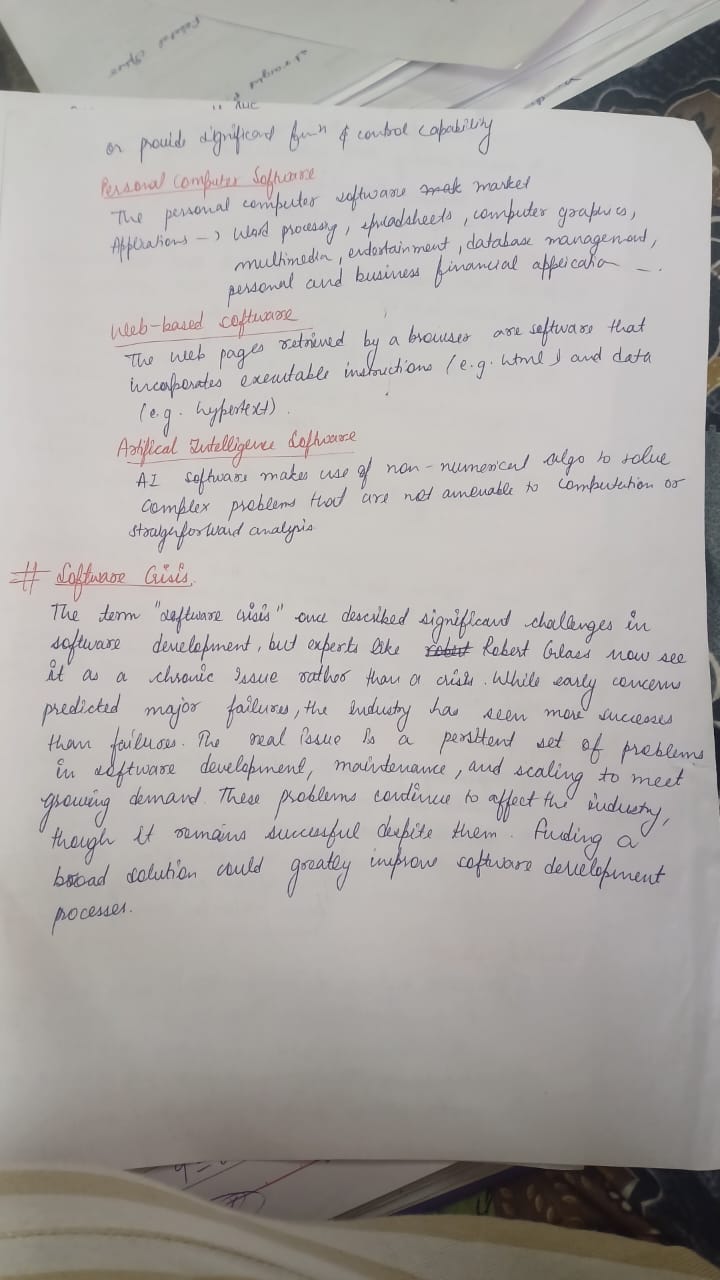 or provide significant funn & control capability
Personal Computer Software
The personal computer software mak market
Applications -> Word processing, spreadsheets, computer graphics,
multimedia, entertainment, database management,
personal and business financial application -.
Web-based software
The web pages retrieved by a browser are software that
incorporates executable instructions (e.g. html) and data
(e.g. hypertext).
Artifical Intelligence Software
AI software makes use of non-numerical algo to solve
complex problems that are not amenable to computation or
straigforward analysis
# Software Crisis.
The term "software crisis" once described significant challenges in
software development, but experts like robert Robert Glass now see
it as a chronic issue rather than a crisis. While early concerns
predicted major failures, the industry has seen more successes
than failures. The real issue is a persitent set of problems
in software development, maintenance, and scaling to meet
growing demand. These problems continue to affect the industry,
though it remains successful despite them. finding a
broad solution could greatly improve software development
processes.